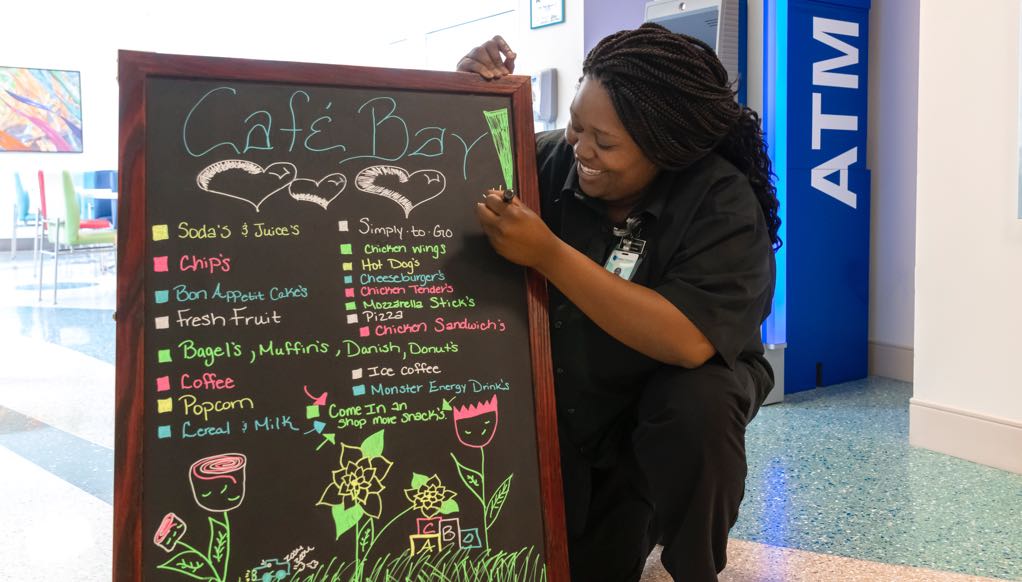 Café Bay
Soda's & Juice's
Chip's
Bon Appetit Cake's
Fresh Fruit
Bagel's, Muffin's, Danish, Donut's
Coffee
Popcorn
Cereal & Milk
Simply-to-Go
Chicken Wings
Hot Dog's
Cheeseburger's
Chicken Tender's
Mozzarella Stick's
Pizza
Chicken Sandwich's
Ice coffee
Monster Energy Drink's
Come In an
shop more snack's.
C B
A
ATM